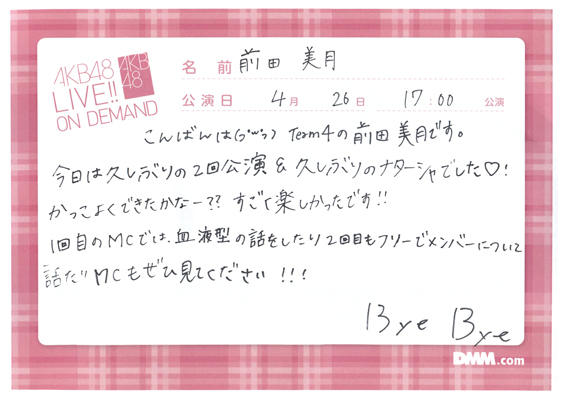 AKB48
LIVE!!
ON DEMAND
AKB
48
名 前 前田 美月
公演日 4月 26日 17:00 公演
こんばんは(らˊωˋら) Team4の前田美月です。
今日は久しぶりの2回公演 & 久しぶりのナターシャでした♡!
かっこよくできたかなー?? すごく楽しかったです!!
1回目のMCでは、血液型の話をしたり2回目もフリーでメンバーについて
話たり MCもぜひ見てください !!!
Bye Bye
DMM.com